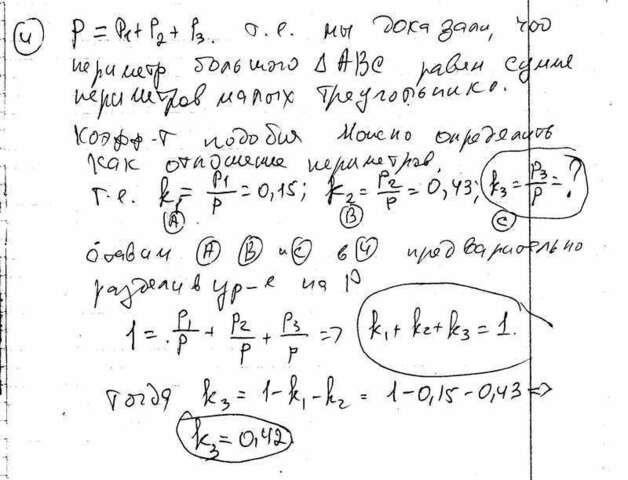 ④ P = P₁ + P₂ + P₃. т.е. мы доказали, что
периметр большого ΔABC равен сумме
периметров малых треугольнико.
Коэфф-т подобия можно определить
как отношение периметров,
т.е. k₁ = P₁/P = 0,15; k₂ = P₂/P = 0,43; k₃ = P₃/P = ?
Ⓐ Ⓑ Ⓒ
Ⓐ Ⓑ и Ⓒ в ④ предварительно
разделив ур-е на P
1 = P₁/P + P₂/P + P₃/P => k₁ + k₂ + k₃ = 1.
тогда k₃ = 1 - k₁ - k₂ = 1 - 0,15 - 0,43 =>
k₃ = 0,42